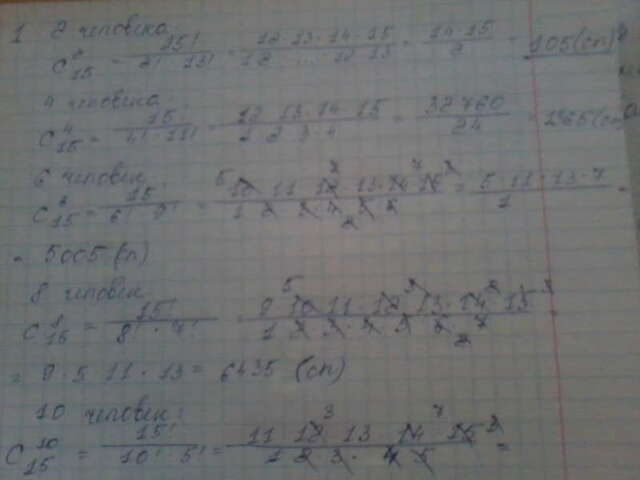 1 2 человека:
C²₁₅ = 15! / 2! · 13! = 12 13 · 14 · 15 / 1 2 ... 12 13 = 14 · 15 / 2 = 105 (сп)
4 человека:
C⁴₁₅ = 15 / 4! · 11! = 12 13 · 14 15 / 1 2 3 · 4 = 32760 / 24 = 1365 (сп)
6 человек:
C₁₅ = 15 / 6! · 9! = 10 11 12 13 · 14 15 / 1 2 3 4 5 6 = 5 · 11 · 13 · 7 / 1 =
= 5005 (п)
8 человек
C⁸₁₅ = 15! / 8! · 7! = 9 10 11 · 12 13 · 14 15 / 1 2 3 4 5 6 7 =
= 9 · 5 11 · 13 = 6435 (сп)
10 человек:
C¹⁰₁₅ = 15! / 10! · 5! = 11 12 13 14 15 / 1 2 3 · 4 5 =